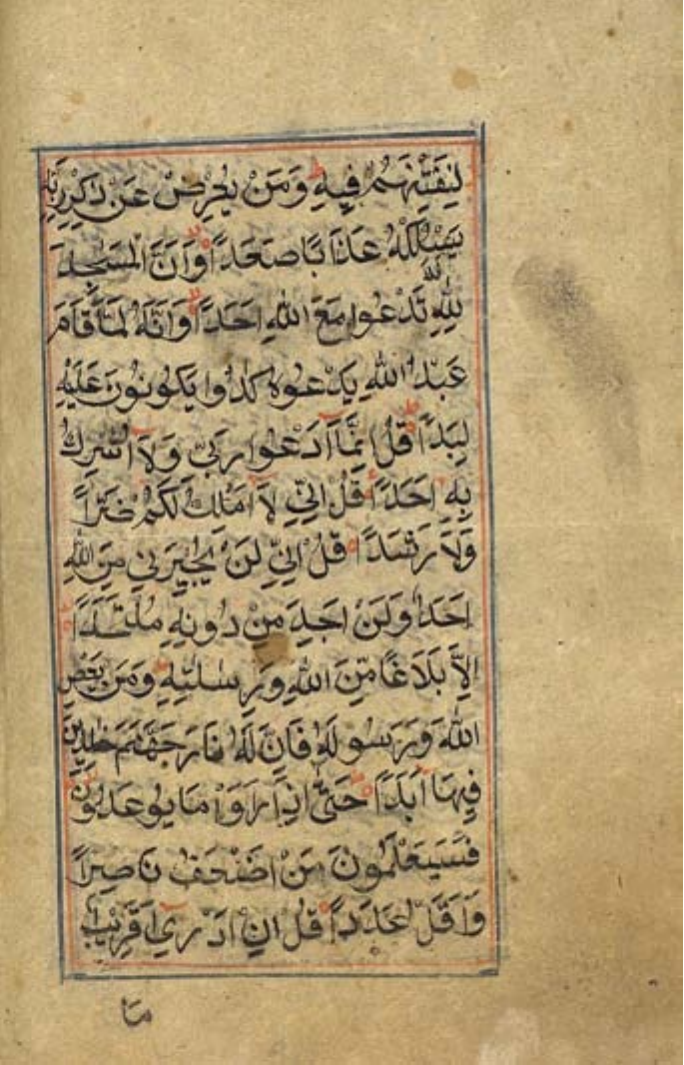 لِنَفْتِنَهُمْ فِيهِ وَمَنْ يُعْرِضْ عَنْ ذِكْرِ رَبِّهِ
يَسْلُكْهُ عَذَابًا صَعَدًا وَاَنَّ الْمَسٰجِدَ
لِلّٰهِ فَلَا تَدْعُوا مَعَ اللّٰهِ اَحَدًا وَاَنَّهُ لَمَّا قَامَ
عَبْدُ اللّٰهِ يَدْعُوهُ كَادُوا يَكُونُونَ عَلَيْهِ
لِبَدًا قُلْ اِنَّمَا اَدْعُوا رَبِّي وَلَا اُشْرِكُ
بِهِ اَحَدًا قُلْ اِنِّي لَا اَمْلِكُ لَكُمْ ضَرًّا
وَلَا رَشَدًا قُلْ اِنِّي لَنْ يُجِيرَنِي مِنَ اللّٰهِ
اَحَدٌ وَلَنْ اَجِدَ مِنْ دُونِهِ مُلْتَحَدًا
اِلَّا بَلَاغًا مِنَ اللّٰهِ وَرِسٰلٰتِهِ وَمَنْ يَعْصِ
اللّٰهَ وَرَسُولَهُ فَاِنَّ لَهُ نَارَ جَهَنَّمَ خٰلِدِينَ
فِيهَا اَبَدًا حَتَّى اِذَا رَاَوْا مَا يُوعَدُونَ
فَسَيَعْلَمُونَ مَنْ اَضْعَفُ نَاصِرًا
وَاَقَلُّ عَدَدًا قُلْ اِنْ اَدْرِي اَقَرِيبٌ
مَا